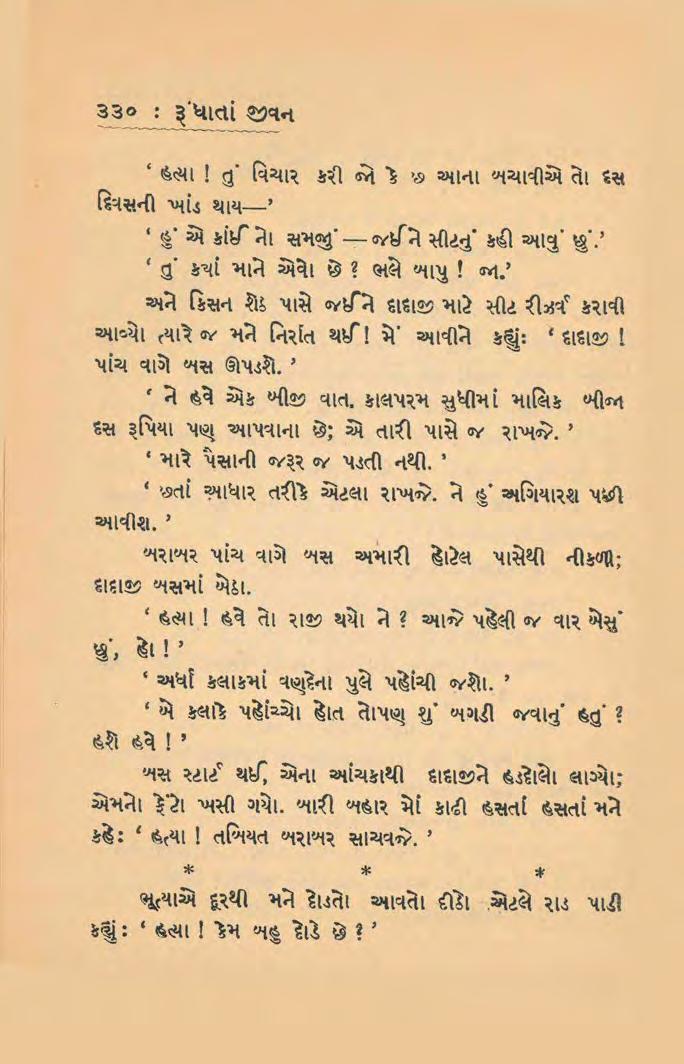 ૩૩૦ : રૂંધાતાં જીવન
‘ હત્યા ! તું વિચાર કરી જો કે છ આના બચાવીએ તો દસ
દિવસની ખાંડ થાય—’
‘ હું એ કાંઈ નો સમજું —જઈને સીટનું કહી આવું છું.’
‘ તું ક્યાં માને એવો છે ? ભલે બાપુ ! જા.’
અને કિસન શેઠ પાસે જઈને દાદાજી માટે સીટ રીઝર્વ કરાવી
આવ્યો ત્યારે જ મને નિરાંત થઈ ! મેં આવીને કહ્યું: ‘ દાદાજી !
પાંચ વાગે બસ ઊપડશે. ’
‘ ને હવે એક બીજી વાત. કાલપરમ સુધીમાં માલિક બીજા
દસ રૂપિયા પણ આપવાના છે; એ તારી પાસે જ રાખજે. ’
‘ મારે પૈસાની જરૂર જ પડતી નથી. ’
‘ છતાં આધાર તરીકે એટલા રાખજે. ને હું અગિયારશ પછી
આવીશ. ’
બરાબર પાંચ વાગે બસ અમારી હોટેલ પાસેથી નીકળી;
દાદાજી બસમાં બેઠા.
‘ હત્યા ! હવે તો રાજી થયો ને ? આજે પહેલી જ વાર બેસું
છું, હો ! ’
‘ અર્ધા કલાકમાં વણદેના પુલે પહોંચી જશો. ’
‘ બે કલાકે પહોંચ્યો હોત તોપણ શું બગડી જવાનું હતું ?
હશે હવે ! ’
બસ સ્ટાર્ટ થઈ, એના આંચકાથી દાદાજીને હડદોલો લાગ્યો;
એમનો ફેંટો ખસી ગયો. બારી બહાર મોં કાઢી હસતાં હસતાં મને
કહે: ‘ હત્યા ! તબિયત બરાબર સાચવજે. ’
* * *
ભૂત્યાએ દૂરથી મને દોડતો આવતો દીઠો એટલે રાડ પાડી
કહ્યું : ‘ હત્યા ! કેમ બહુ દોડે છે ? ’